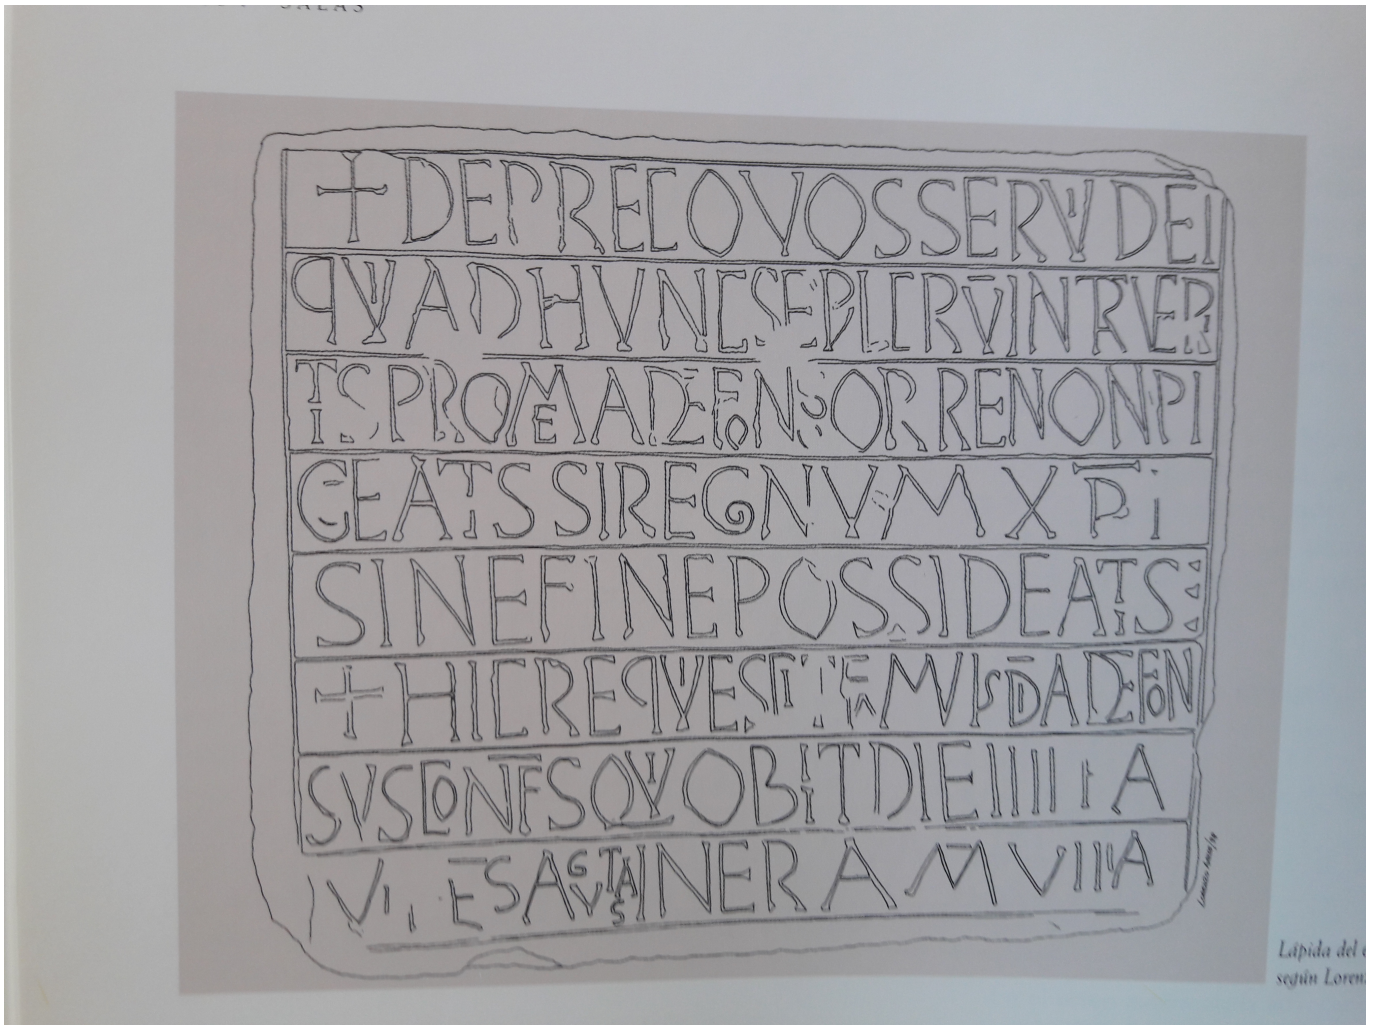 SALAS
+ DEPRECO VOS SERVI DEI
QVI AD HVNC SEPLCRV̄ INTRVER
ITIS PRO ME ADEFONSO ORRE NON PI
GEATIS SI REGNVM X̅P̅I
SINE FINE POSSIDEATIS :
+ HIC REQVIESCIT FAMVS D̅I ADEFON
SVS CONFS QVI OBIIT DIE IIII A
AGVSTAS IN ERA M̄ VIIII A
Lápida del
según Loren